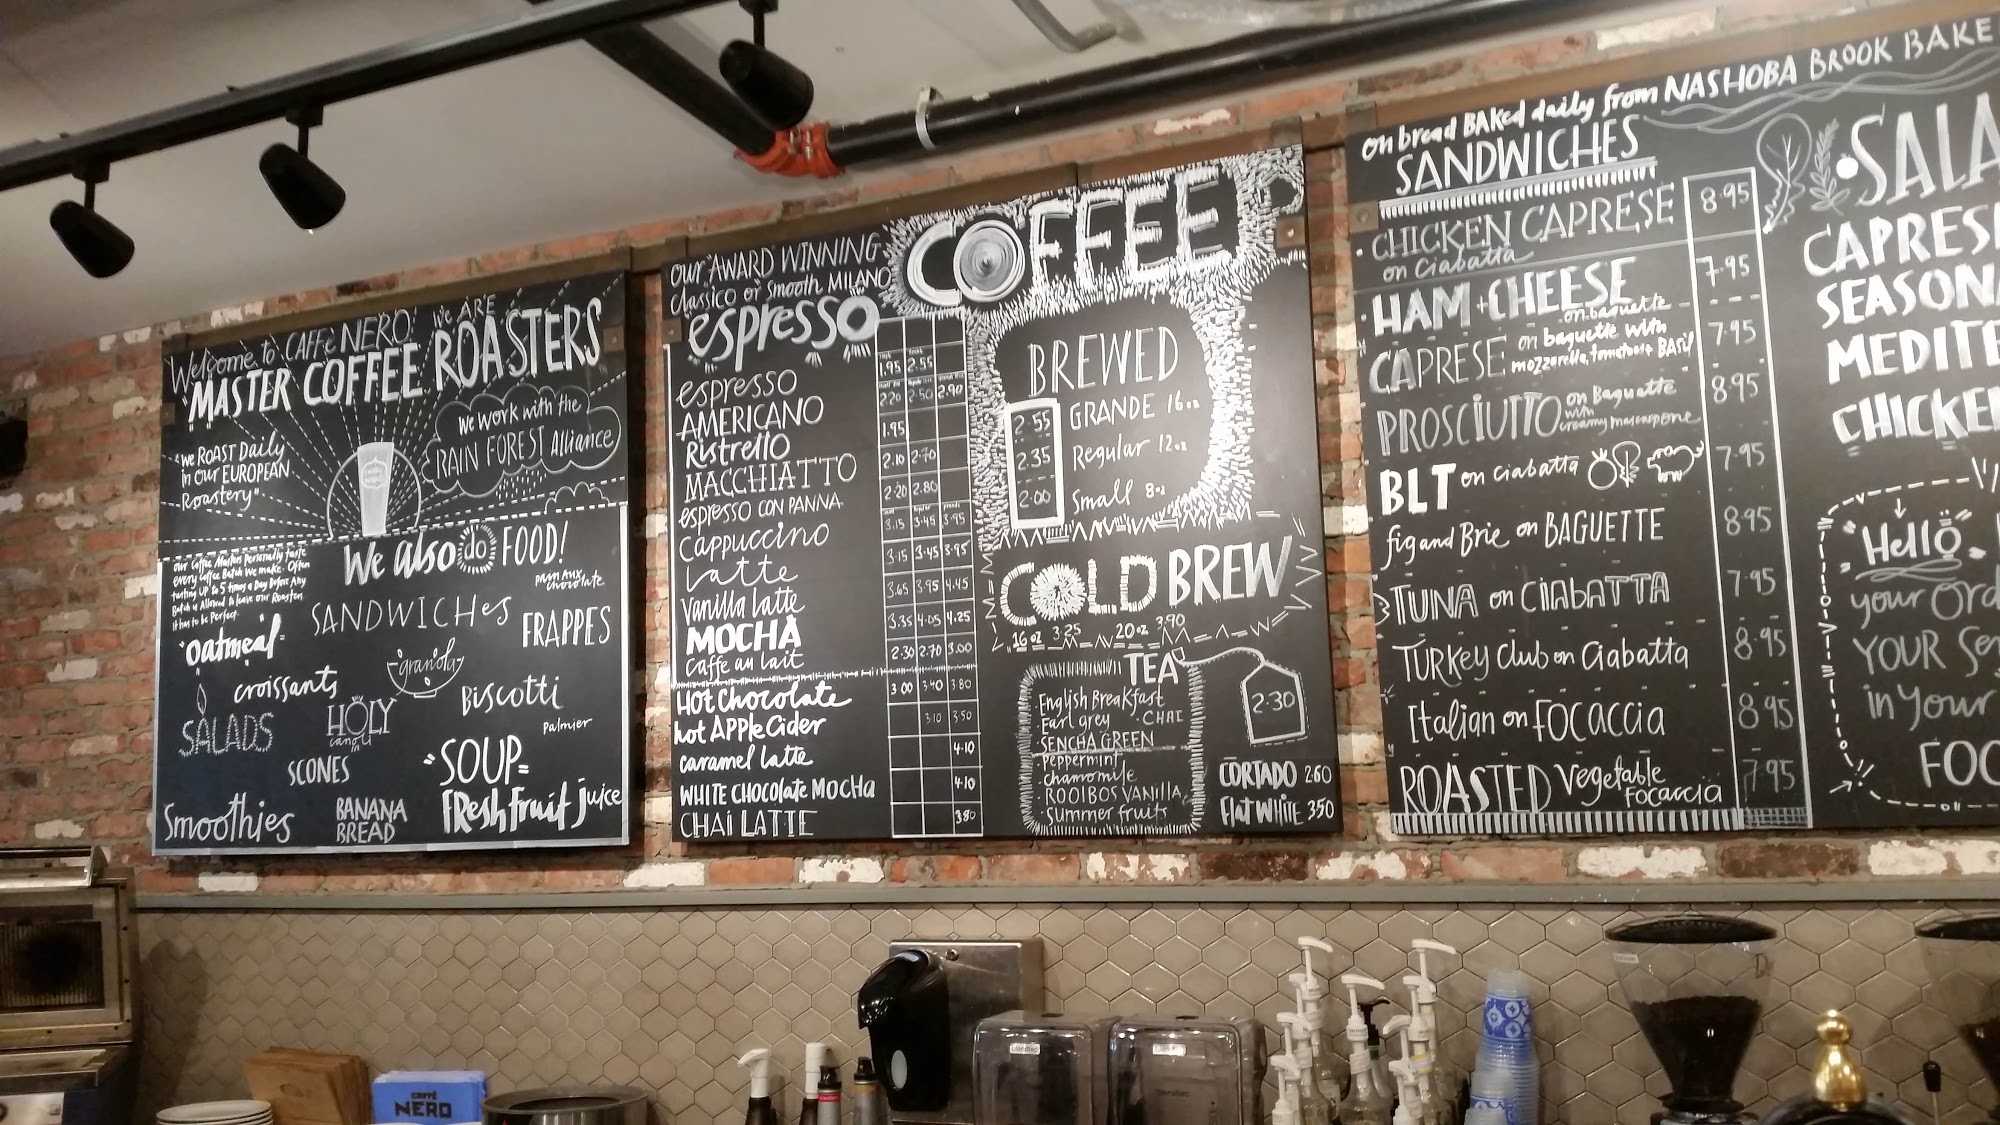 Welcome to CAFFè NERO! we ARE
"MASTER COFFEE ROASTERS
"we ROAST Daily
in our EUROPEAN
Roastery"
we work with the
RAIN FOREST Alliance
We also do FOOD!
our Coffee Masters Personally taste
every Coffee Batch we make. Often
tasting up to 5 times a Day Before Any
Batch is Allowed to leave our Roasters
It has to be Perfect.
pain Aux
chocolate
SANDWICHes
FRAPPES
"oatmeal"
granola
croissants
Biscotti
SALADS
HOLY
canoli
palmier
SCONES
"SOUP=
FResh fruit juice
Smoothies
BANANA
BREAD
our "AWARD WINNING
Classico or Smooth MILANO
espresso
COFFEE
espresso 1.95 2.55
AMERICANO 2.20 2.50 2.90
Ristrello 1.95
MACCHIATTO 2.10 2.70
espresso CON PANNA 2.20 2.80
Cappuccino 3.15 3.45 3.95
Latte 3.15 3.45 3.95
Vanilla latte 3.65 3.95 4.45
MOCHA 3.35 4.05 4.25
Caffe au lait 2.30 2.70 3.00
HOT Chocolate 3.00 3.40 3.80
hot APPle Cider 3.10 3.50
caramel latte 4.10
WHITE CHOColate MOCHa 4.10
CHAI LATTE 3.80
BREWED
2.55 GRANDE 16oz
2.35 Regular 12oz
2.00 Small 8oz
COLD BREW
16oz 3.25 20oz 3.90
TEA
English Breakfast
Earl grey CHAI
SENCHA GREEN
Peppermint
chamomile
ROOIBOS VANILLA
Summer fruits
2.30
CORTADO 2.60
Flat WHITE 3.50
on bread BAKed daily from NASHOBA BROOK BAKE
SANDWICHES
CHICKEN CAPRESE 8.95
on Ciabatta
HAM + CHEESE 7.95
on baguette
CAPRESE on baguette with 7.95
mozzarella, tomatoes + BASil
PROSCIUTTO on Baguette 8.95
with
creamy mascarpone
BLT on ciabatta 7.95
fig and Brie on BAGUETTE 8.95
TUNA on CIABATTA 7.95
TURKey Club on Ciabatta 8.95
Italian on FOCACCIA 8.95
ROASTED Vegetable 7.95
FOCACCIA
SALA
CAPRES
SEASON
MEDITE
CHICKEN
Hello
your Ord
YOUR Se
in Your
FOO
CAFFÈ
NERO
blendtec